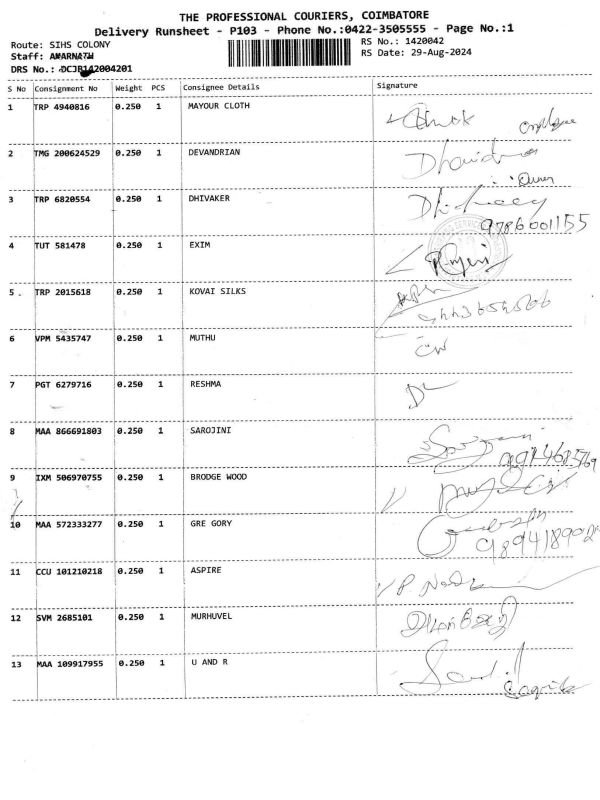 THE PROFESSIONAL COURIERS, COIMBATORE
Delivery Runsheet - P103 - Phone No.:0422-3505555 - Page No.:1
Route: SIHS COLONY RS No.: 1420042
Staff: AMARNATH RS Date: 29-Aug-2024
DRS No.: DCJB142004201
S No Consignment No Weight PCS Consignee Details Signature
1 TRP 4940816 0.250 1 MAYOUR CLOTH
2 TMG 200624529 0.250 1 DEVANDRIAN
Owner
3 TRP 6820554 0.250 1 DHIVAKER
9786001155
4 TUT 581478 0.250 1 EXIM
5 . TRP 2015618 0.250 1 KOVAI SILKS
6 VPM 5435747 0.250 1 MUTHU
7 PGT 6279716 0.250 1 RESHMA
8 MAA 866691803 0.250 1 SAROJINI
9 IXM 506970755 0.250 1 BRODGE WOOD
10 MAA 572333277 0.250 1 GRE GORY
11 CCU 101210218 0.250 1 ASPIRE
12 SVM 2685101 0.250 1 MURHUVEL
13 MAA 109917955 0.250 1 U AND R